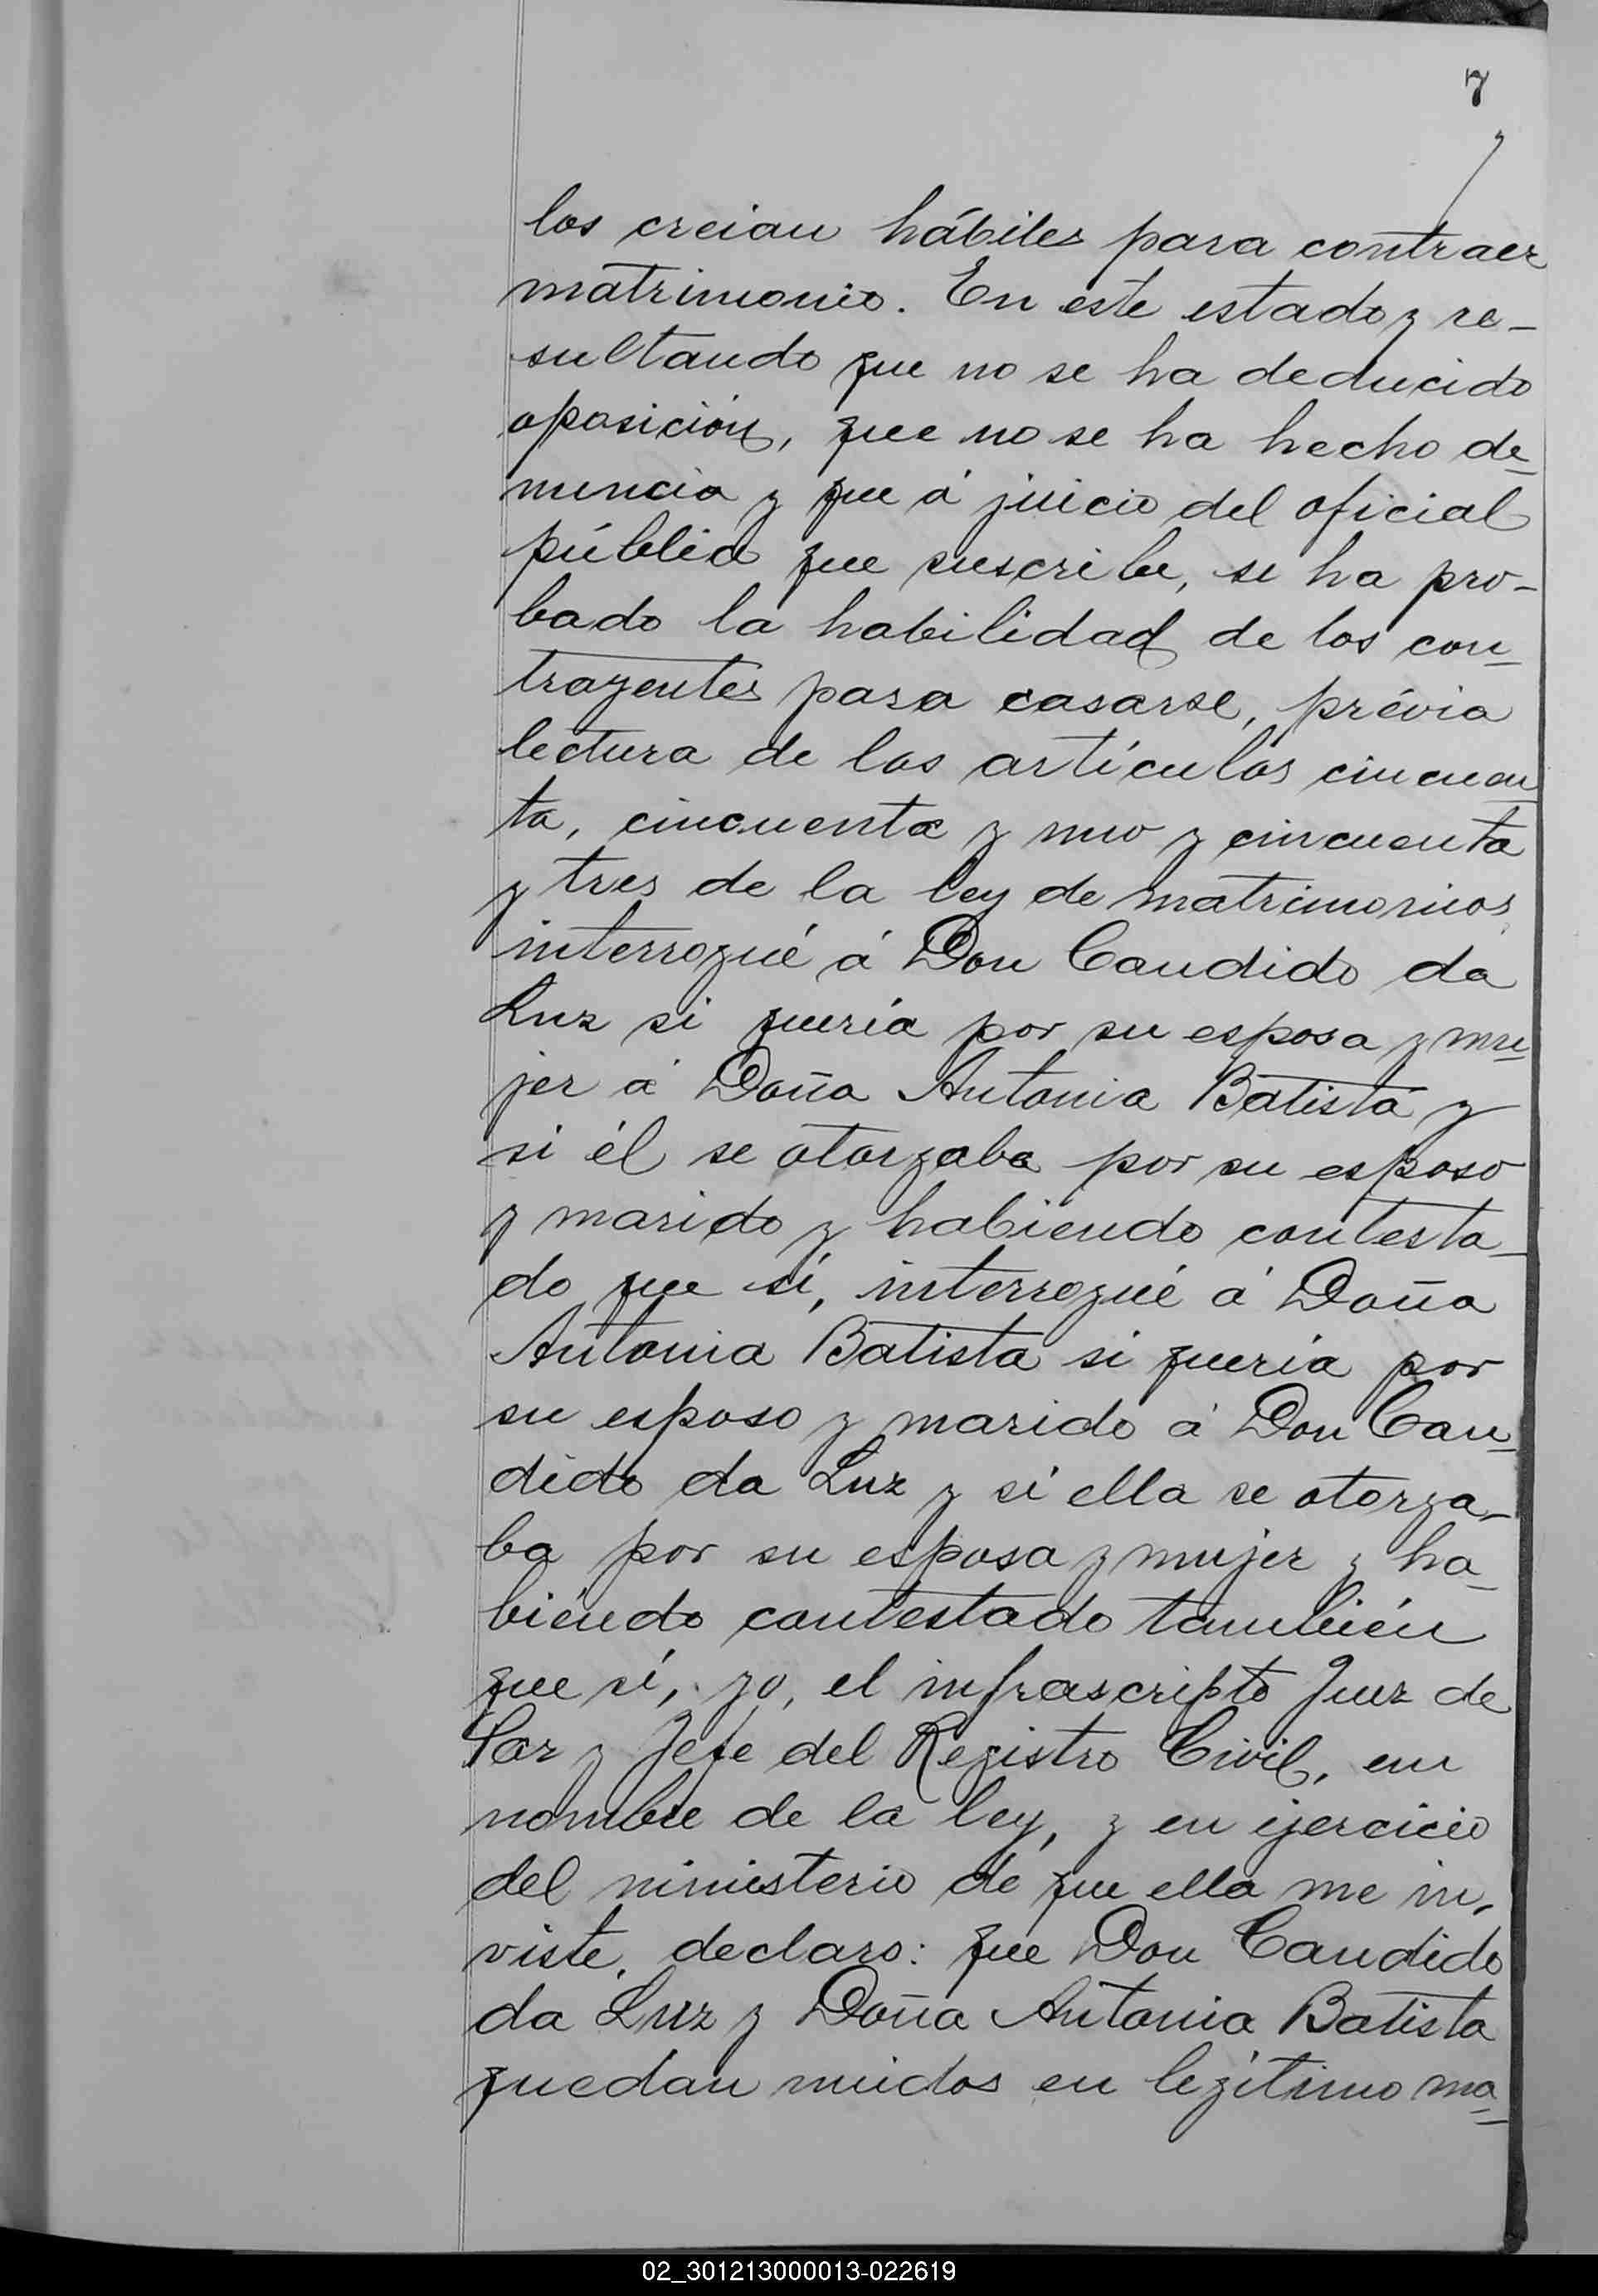 7
los creian hábiles para contraer
matrimonio. En este estado y re-
sultando que no se ha deducido
oposición, que no se ha hecho de-
nuncia y que á juicio del oficial
público que suscribe, se ha pro-
bado la habilidad de los con-
trayentes para casarse, prévia
lectura de los artículos cincuen-
ta, cincuenta y uno y cincuenta
y tres de la ley de matrimonios,
interrogué á Don Candido da
Luz si quería por su esposa y mu-
jer á Doña Antonia Batista y
si él se otorgaba por su esposo
y marido y habiendo contesta-
do que sí, interrogué á Doña
Antonia Batista si quería por
su esposo y marido á Don Can-
dido da Luz y si ella se otorga-
ba por su esposa y mujer y ha-
biendo contestado también
que sí, yo, el infrascripto Juez de
Paz y Jefe del Registro Civil, en
nombre de la ley, y en ejercicio
del ministerio de que ella me in-
viste, declaro: que Don Candido
da Luz y Doña Antonia Batista
quedan unidos en legítimo ma-
02_301213000013-022619